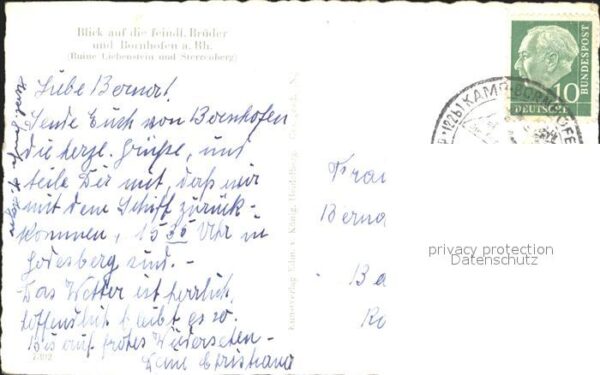 Blick auf die feindl. Brüder
und Bornhofen a. Rh.
(Ruine Liebenstein und Sterrenberg)
Liebe Berna!
Sende Euch von Bornhofen
die herzl. Grüße, und
teile Dir mit, daß wir
mit dem Schiff zurück-
kommen, 15 Uhr in
Godesberg sind. -
Das Wetter ist herrlich,
hoffentlich bleibt es so.
Bis auf frohes Wiedersehen -
Deine Christiana
7302
Frau
Berna
Ba
10
DEUTSCHE
BUNDESPOST
(22b) KAMP-BORNHOFEN
privacy protection
Datenschutz